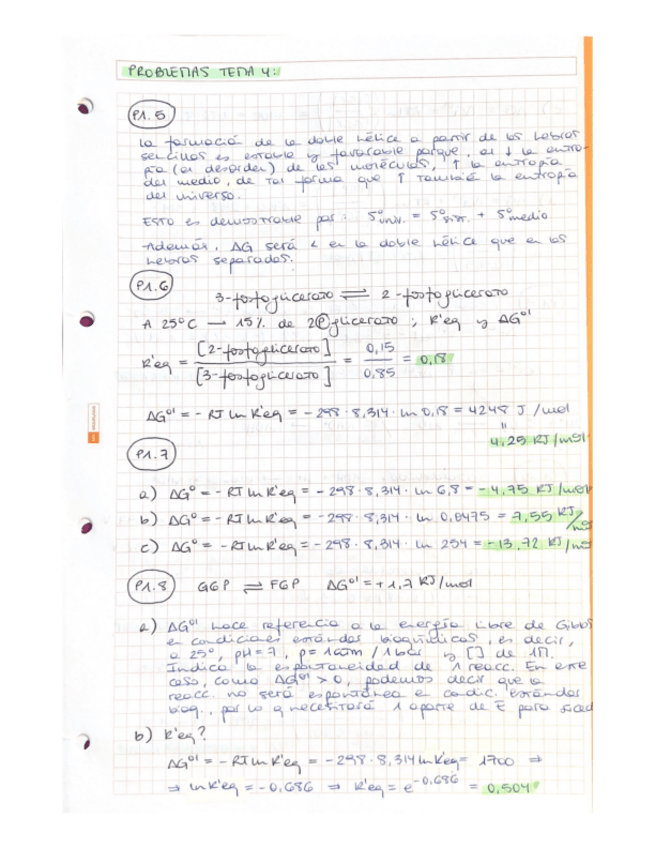 PROBLEMAS TEMA 4:
P1.5
La formació de la doble hélice a partir de las hebras
sencillas es estable y favorable porque, al ↓ la entro-
pía (el desorden) de las moléculas, ↑ la entropía
del medio, de tal forma que ↑ també la entropía
del universo.
Esto es demostrable por: S°univ. = S°sist. + S°medio
Además, ΔG será < en la doble hélice que en las
hebras separadas.
P1.6
3-fosfoglicerato ⇌ 2-fosfoglicerato
A 25°C → 15% de 2Ⓟglicerato ; K'eq y ΔG°'
K'eq = [2-fosfoglicerato] / [3-fosfoglicerato] = 0,15 / 0,85 = 0,18
ΔG°' = - RT ln K'eq = - 298 · 8,314 · ln 0,18 = 4248 J /mol
"
4,25 KJ/mol
P1.7
a) ΔG° = - RT ln K'eq = - 298 · 8,314 · ln 6,8 = - 4,75 KJ/mol
b) ΔG° = - RT ln K'eq = - 298 · 8,314 · ln 0,0475 = 7,55 KJ/mol
c) ΔG° = - RT ln K'eq = - 298 · 8,314 · ln 254 = - 13,72 KJ/mol
P1.8 G6P ⇌ F6P ΔG°' = + 1,7 KJ/mol
a) ΔG°' hace referencia a la energía libre de Gibbs
en condiciones estándar bioquímicas, es decir,
a 25°, pH = 7, p = 1atm / 1bar y [] de 1M.
Indica la espontaneidad de 1 reacc. En este
caso, como ΔG°' > 0, podemos decir que la
reacc. no será espontánea en condic. estándar
bioq., por lo q necesitará 1 aporte de E para suced
b) K'eq?
ΔG°' = - RT ln K'eq = - 298 · 8,314 ln K'eq = 1700 ⇒
⇒ ln K'eq = - 0,686 ⇒ K'eq = e^-0,686 = 0,504